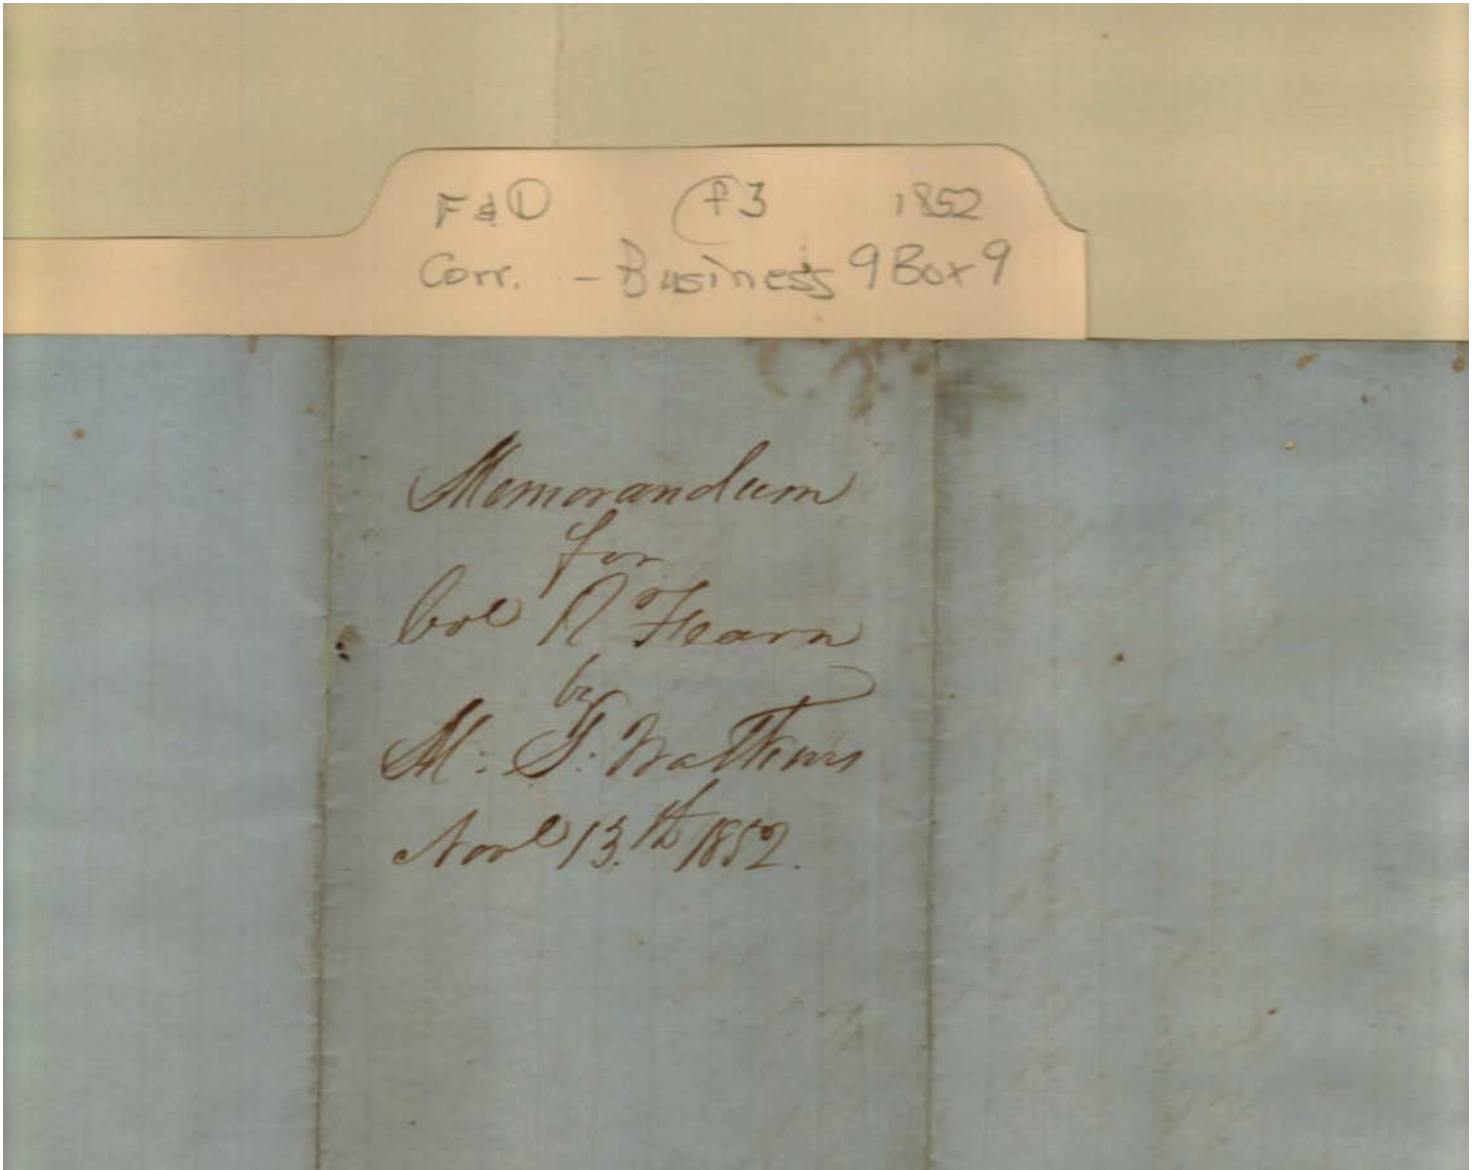 F & D (f3 1852
Corr. - Business 9 Box 9
Memorandum
for
Col R Fearn
by
M. G. Watkins
Novr 13.th 1852.